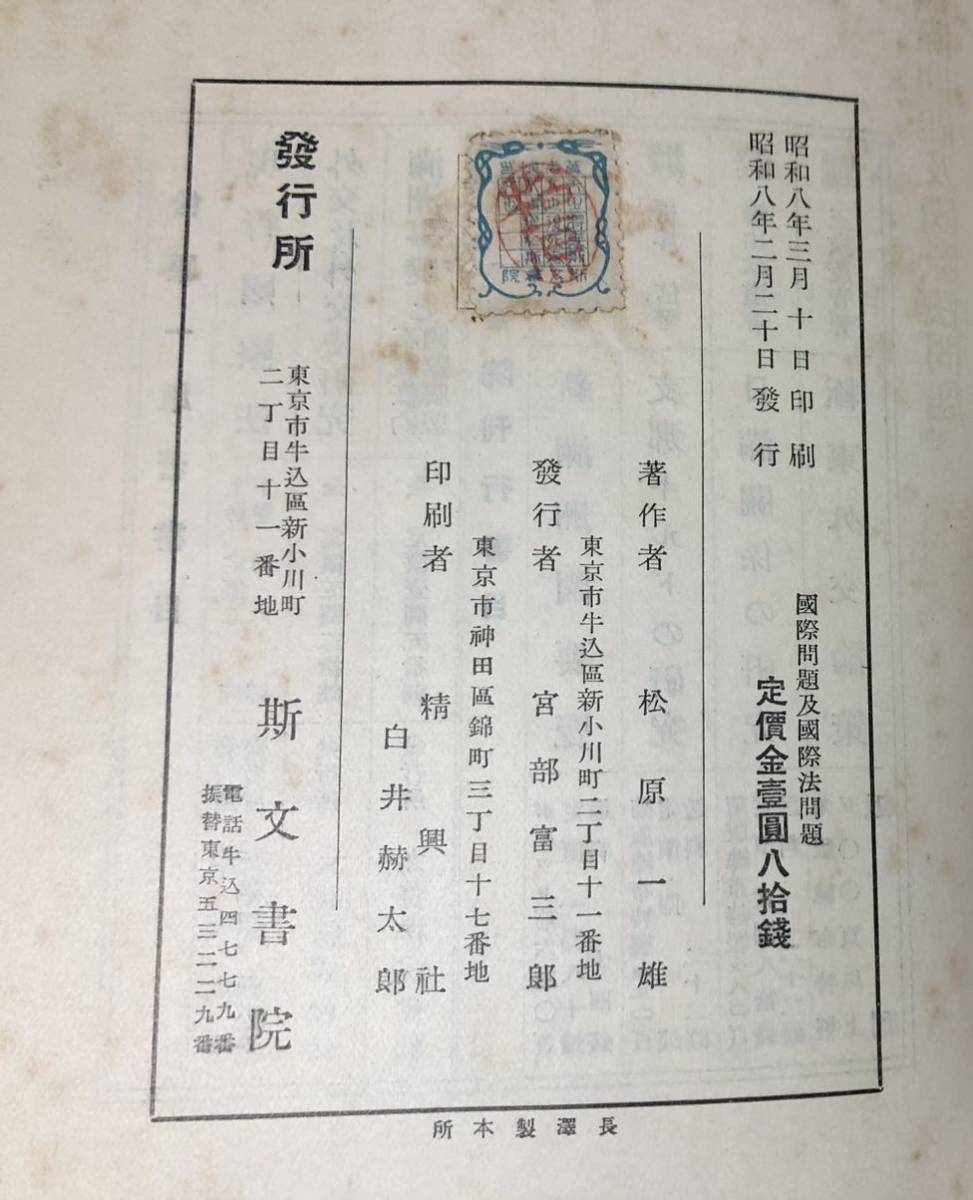 昭和八年三月十日印刷
昭和八年二月二十日發行
國際問題及國際法問題
定價金壹圓八拾錢
著作者 松原一雄
東京市牛込區新小川町二丁目十一番地
發行者 宮部富三郞
東京市神田區錦町三丁目十七番地
印刷者 精興社
白井赫太郞
發行所
東京市牛込區新小川町
二丁目十一番地
斯文書院
電話牛込四七七九番
振替東京五三二二九番
長澤製本所